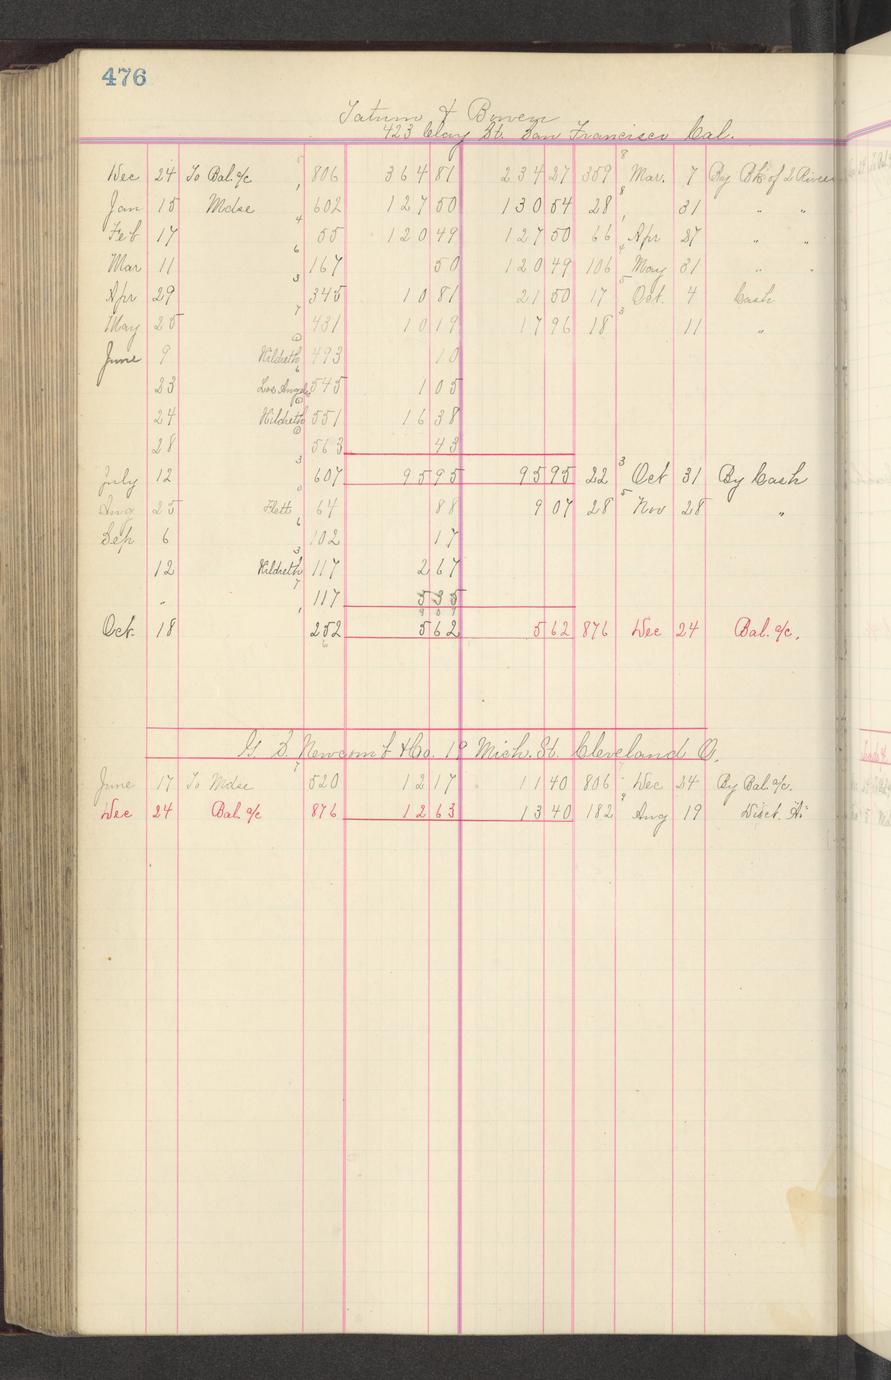 476
Tatum & Bowen
423 Clay St. San Francisco Cal.
Dec 24 To Bal. a/c 806 364 81 234 27 359 Mar. 7 By Bk of 2 Rivers
Jan 15 Mdse 602 127 50 130 54 28 31 " "
Feb 17 55 120 49 127 50 66 Apr 27 " "
Mar 11 167 50 120 49 106 May 31 " "
Apr 29 345 10 81 21 50 17 Oct. 4 Cash
May 25 431 10 19 17 96 18 11 "
June 9 Hildreth 493 10
23 Los Angeles 545 1 05
24 Hildreth 551 16 38
28 563 43
July 12 607 95 95 95 95 22 Oct 31 By Cash
Aug 25 64 88 9 07 28 Nov 28 "
Sep 6 102 17
12 Hildreth 117 2 67
" 117 5 35
9 07
Oct. 18 252 5 62 5 62 876 Dec 24 Bal. a/c.
G. S. Newcomb & Co. 19 Mich. St. Cleveland O.
June 17 To Mdse 520 12 17 11 40 806 Dec 24 By Bal a/c.
Dec 24 Bal. a/c 876 12 63 13 40 182 Aug 19 Disct.